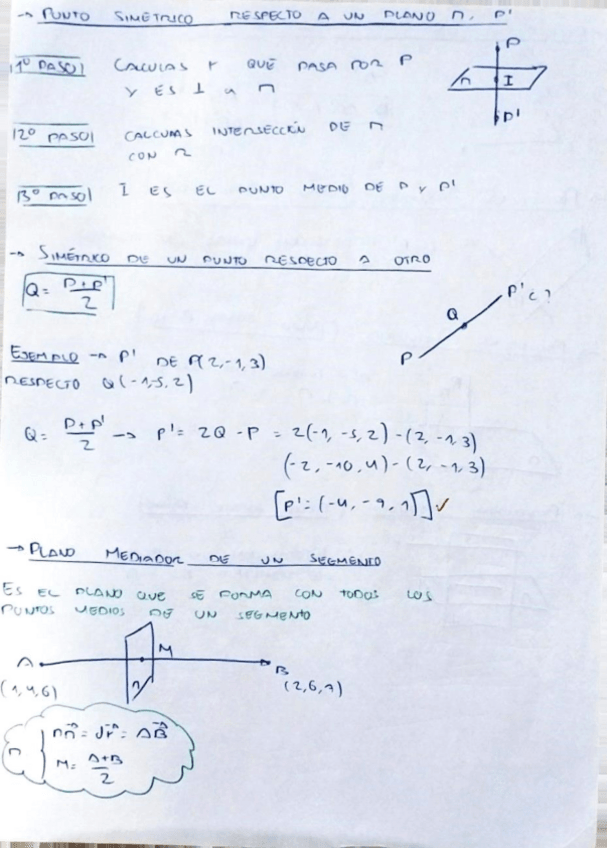 → PUNTO SIMÉTRICO RESPECTO A UN PLANO π, P'
|1º PASO| CALCULAS r QUE PASA POR P
Y ES ⊥ a π
P
π I
P'
|2º PASO| CALCULAS INTERSECCIÓN DE r
CON π
|3º PASO| I ES EL PUNTO MEDIO DE P Y P'
→ SIMÉTRICO DE UN PUNTO RESPECTO A OTRO
Q = P+P'/2
P' ¿?
Q
P
EJEMPLO → P' DE P(2,-1,3)
RESPECTO Q(-1,-5,2)
Q = P+P'/2 → P' = 2Q - P = 2(-1,-5,2)-(2,-1,3)
(-2,-10,4)-(2,-1,3)
[P' = (-4,-9,1)] ✓
→ PLANO MEDIADOR DE UN SEGMENTO
ES EL PLANO QUE SE FORMA CON TODOS LOS
PUNTOS MEDIOS DE UN SEGMENTO
A M B
π
(1,4,6) (2,6,7)
π { nπ = dr = AB
M = A+B/2